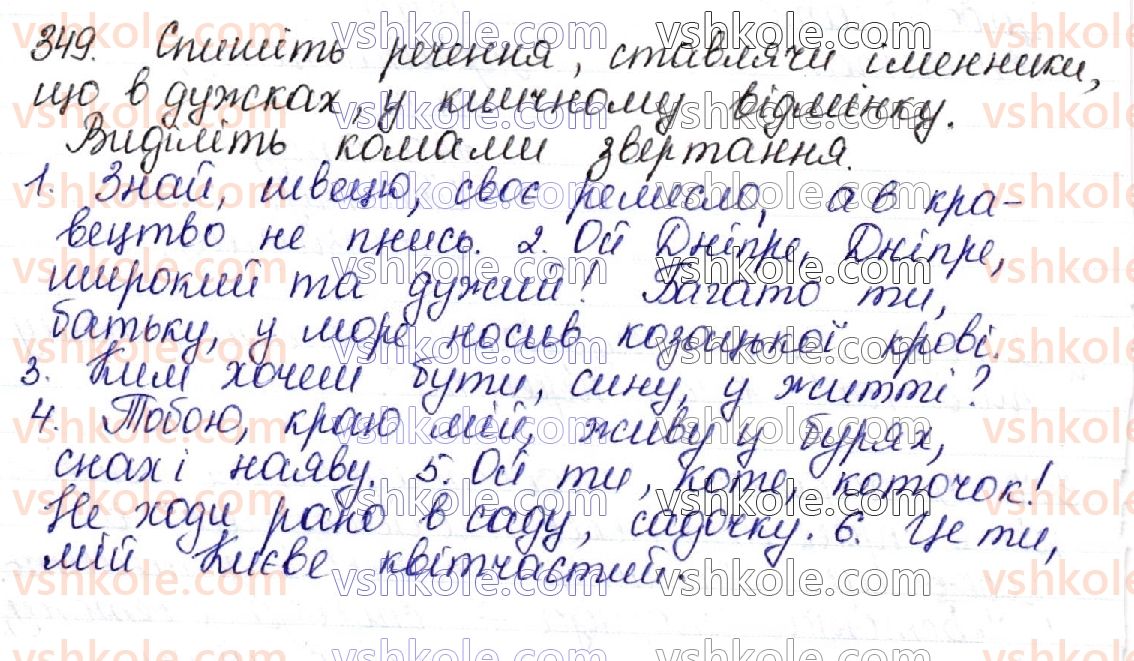 349. Спишіть речення, ставлячи іменники,
що в дужках, у кличному відмінку.
Виділіть комами звертання.
1. Знай, швецю, своє ремесло, а в кра-
вецтво не пнись. 2. Ой Дніпре, Дніпре,
широкий та дужий! Багато ти,
батьку, у море носив козацької крові.
3. Ким хочеш бути, сину, у житті?
4. Тобою, краю мій, живу у бурях,
снах і наяву. 5. Ой ти, коте, коточок!
Не ходи рано в саду, садочку. 6. Це ти,
мій Києве квітчастий.
vshkole.com